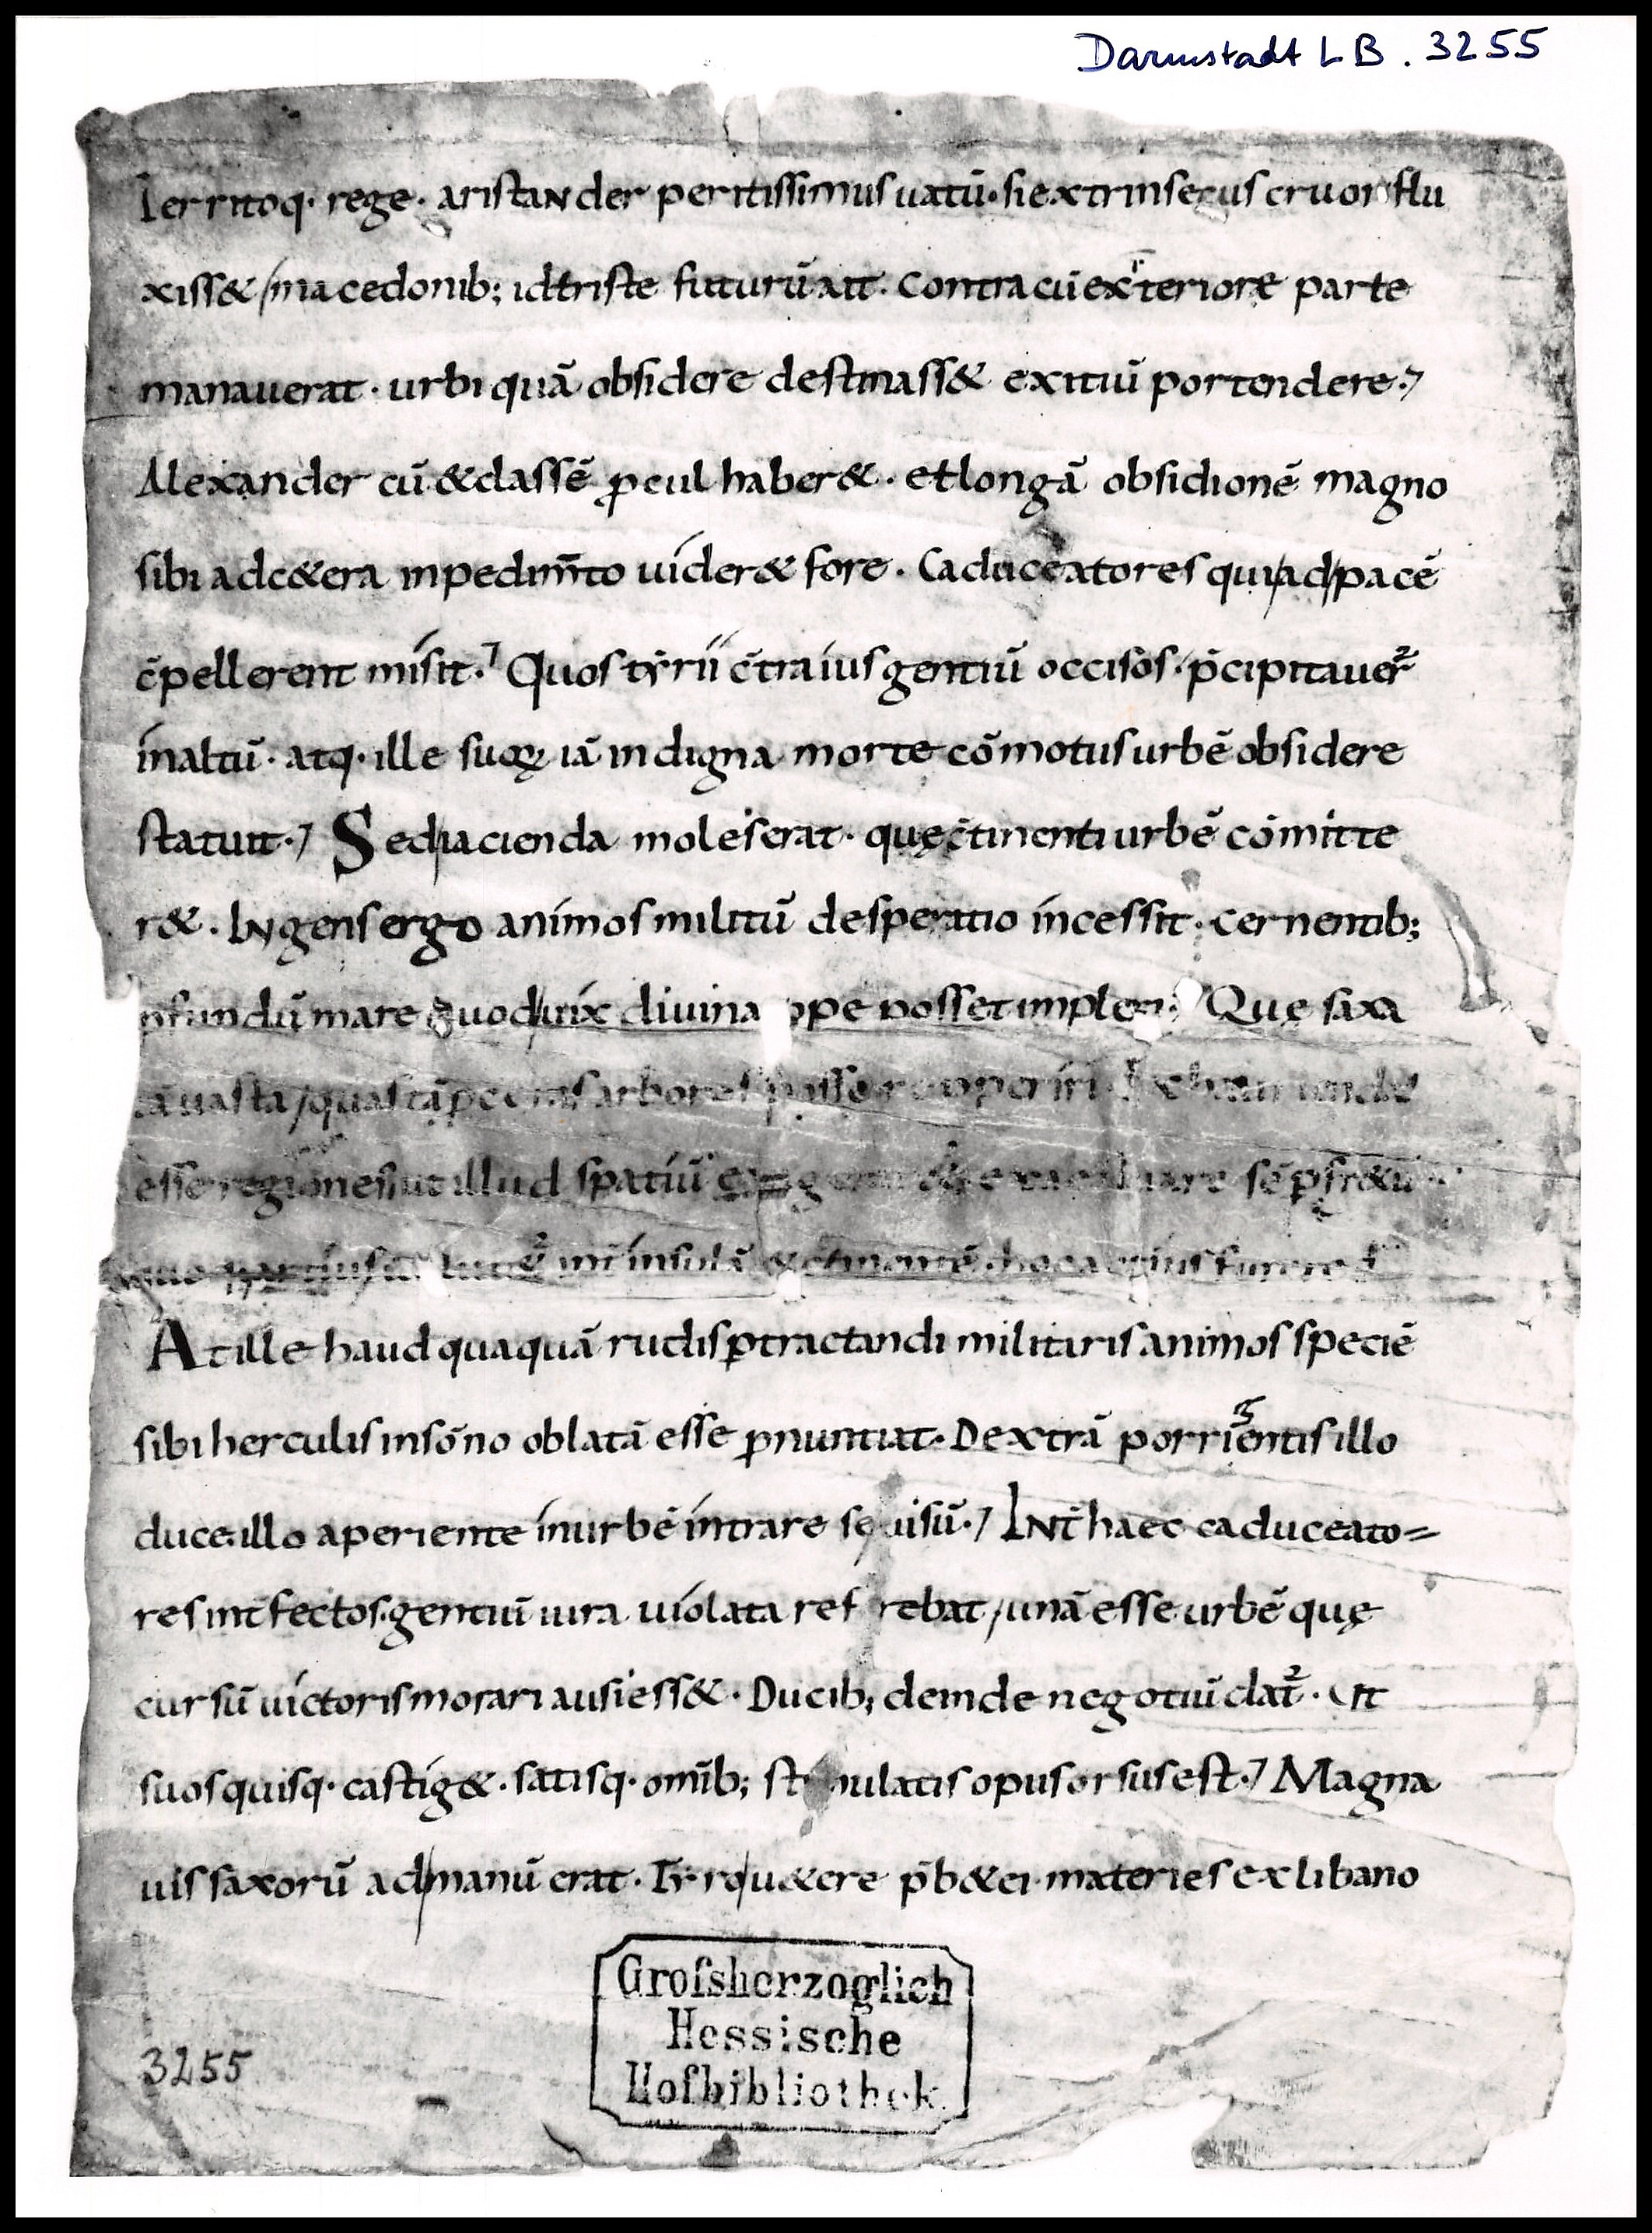 Darmstadt LB. 3255
Territoq· rege· aristander peritissimus uatū· si extrinsecus cruor flu
xiss& macedonib; id triste futurū ait. Contra cū ex īteriore parte
manauerat· urbi quā obsidere destinass& exitiū portendere·
Alexander cū & classē ꝓcul haber&· et longā obsidionē magno
sibi ad c&era inpedim̄to uider& fore. Caduceatores qui ad pacē
c̄pellerent misit· Quos tẏrii c̄tra ius gentiū occisos· p̄cipitauer̄
in altū· atq· ille suoꝝ iā indigna morte cōmotus urbē obsidere
statuit· Sed iacienda moles erat· quę c̄tinenti urbē cōmitte
r&. Ingens ergo animos militū desperatio incessit· cernentib;
ꝓfundū mare quod uix diuina ope posset impleri· Quę saxa
tā uasta quas tā arbores posse reperiri
esse regiones ut illud spatiū sēp fr&ū
int̄ insulā & c̄tinentē· hoc acrius furere
At ille haudquaquā rudis ꝑtractandi militaris animos speciē
sibi herculis in sōno oblatā esse ꝓnuntiat· Dextrā porrigentis illo
duce· illo aperiente in urbē intrare se uisū· Int̄ haec caduceato=
res int̄fectos· gentiū iura uiolata ref rebat unā esse urbē quę
cursū uictoris morari ausi ess&· Ducib; deinde negotiū dat̄· Ut
suos quisq· castig&· satisq· omīb; st mulatis opus orsus est· Magna
uis saxorū ad manū erat· Tẏro u&ere p̄b&e· materies ex libano
Grofsherzoglich
Hessische
Hofbibliothek.
3255